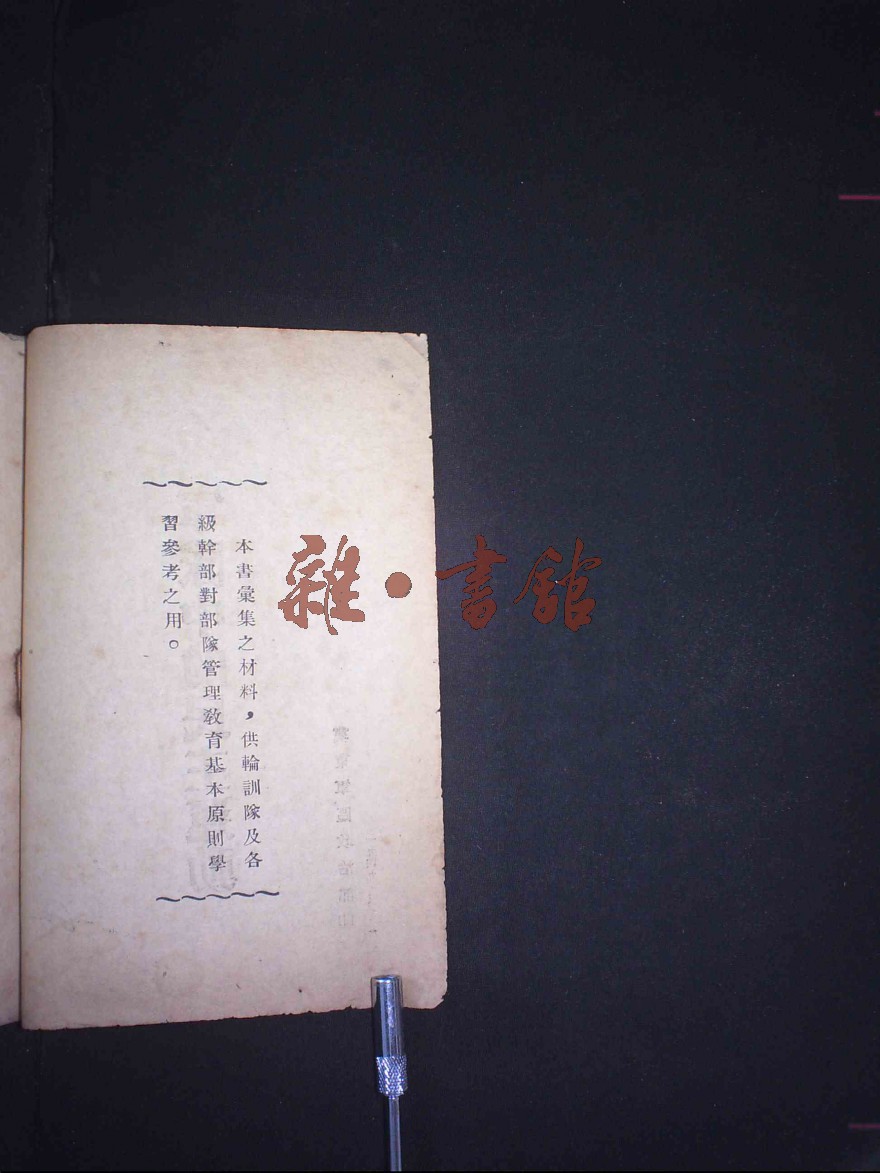 本書彙集之材料，供輪訓隊及各
級幹部對部隊管理敎育基本原則學
習參考之用。
雜·書館